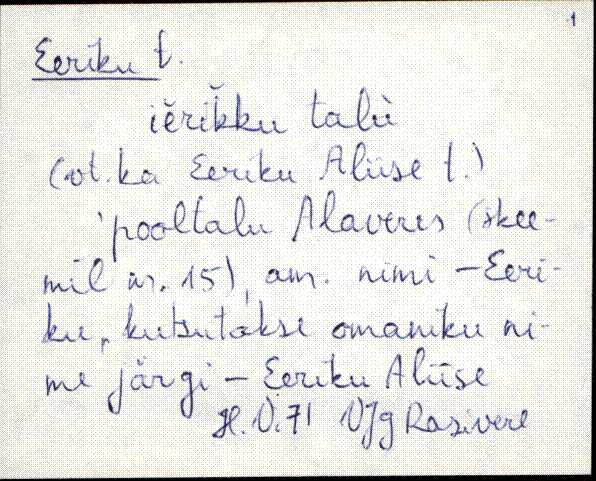 1
Eeriku t.
iĕrik̆ku talù
(vt. ka Eeriku Aliise t.)
'pooltalu Alaveres (skee-
mil nr. 15), am. nimi - Eeri-
ku, kutsutakse omaniku ni-
me järgi - Eeriku Aliise
H. V. 71 VJg Rasivere